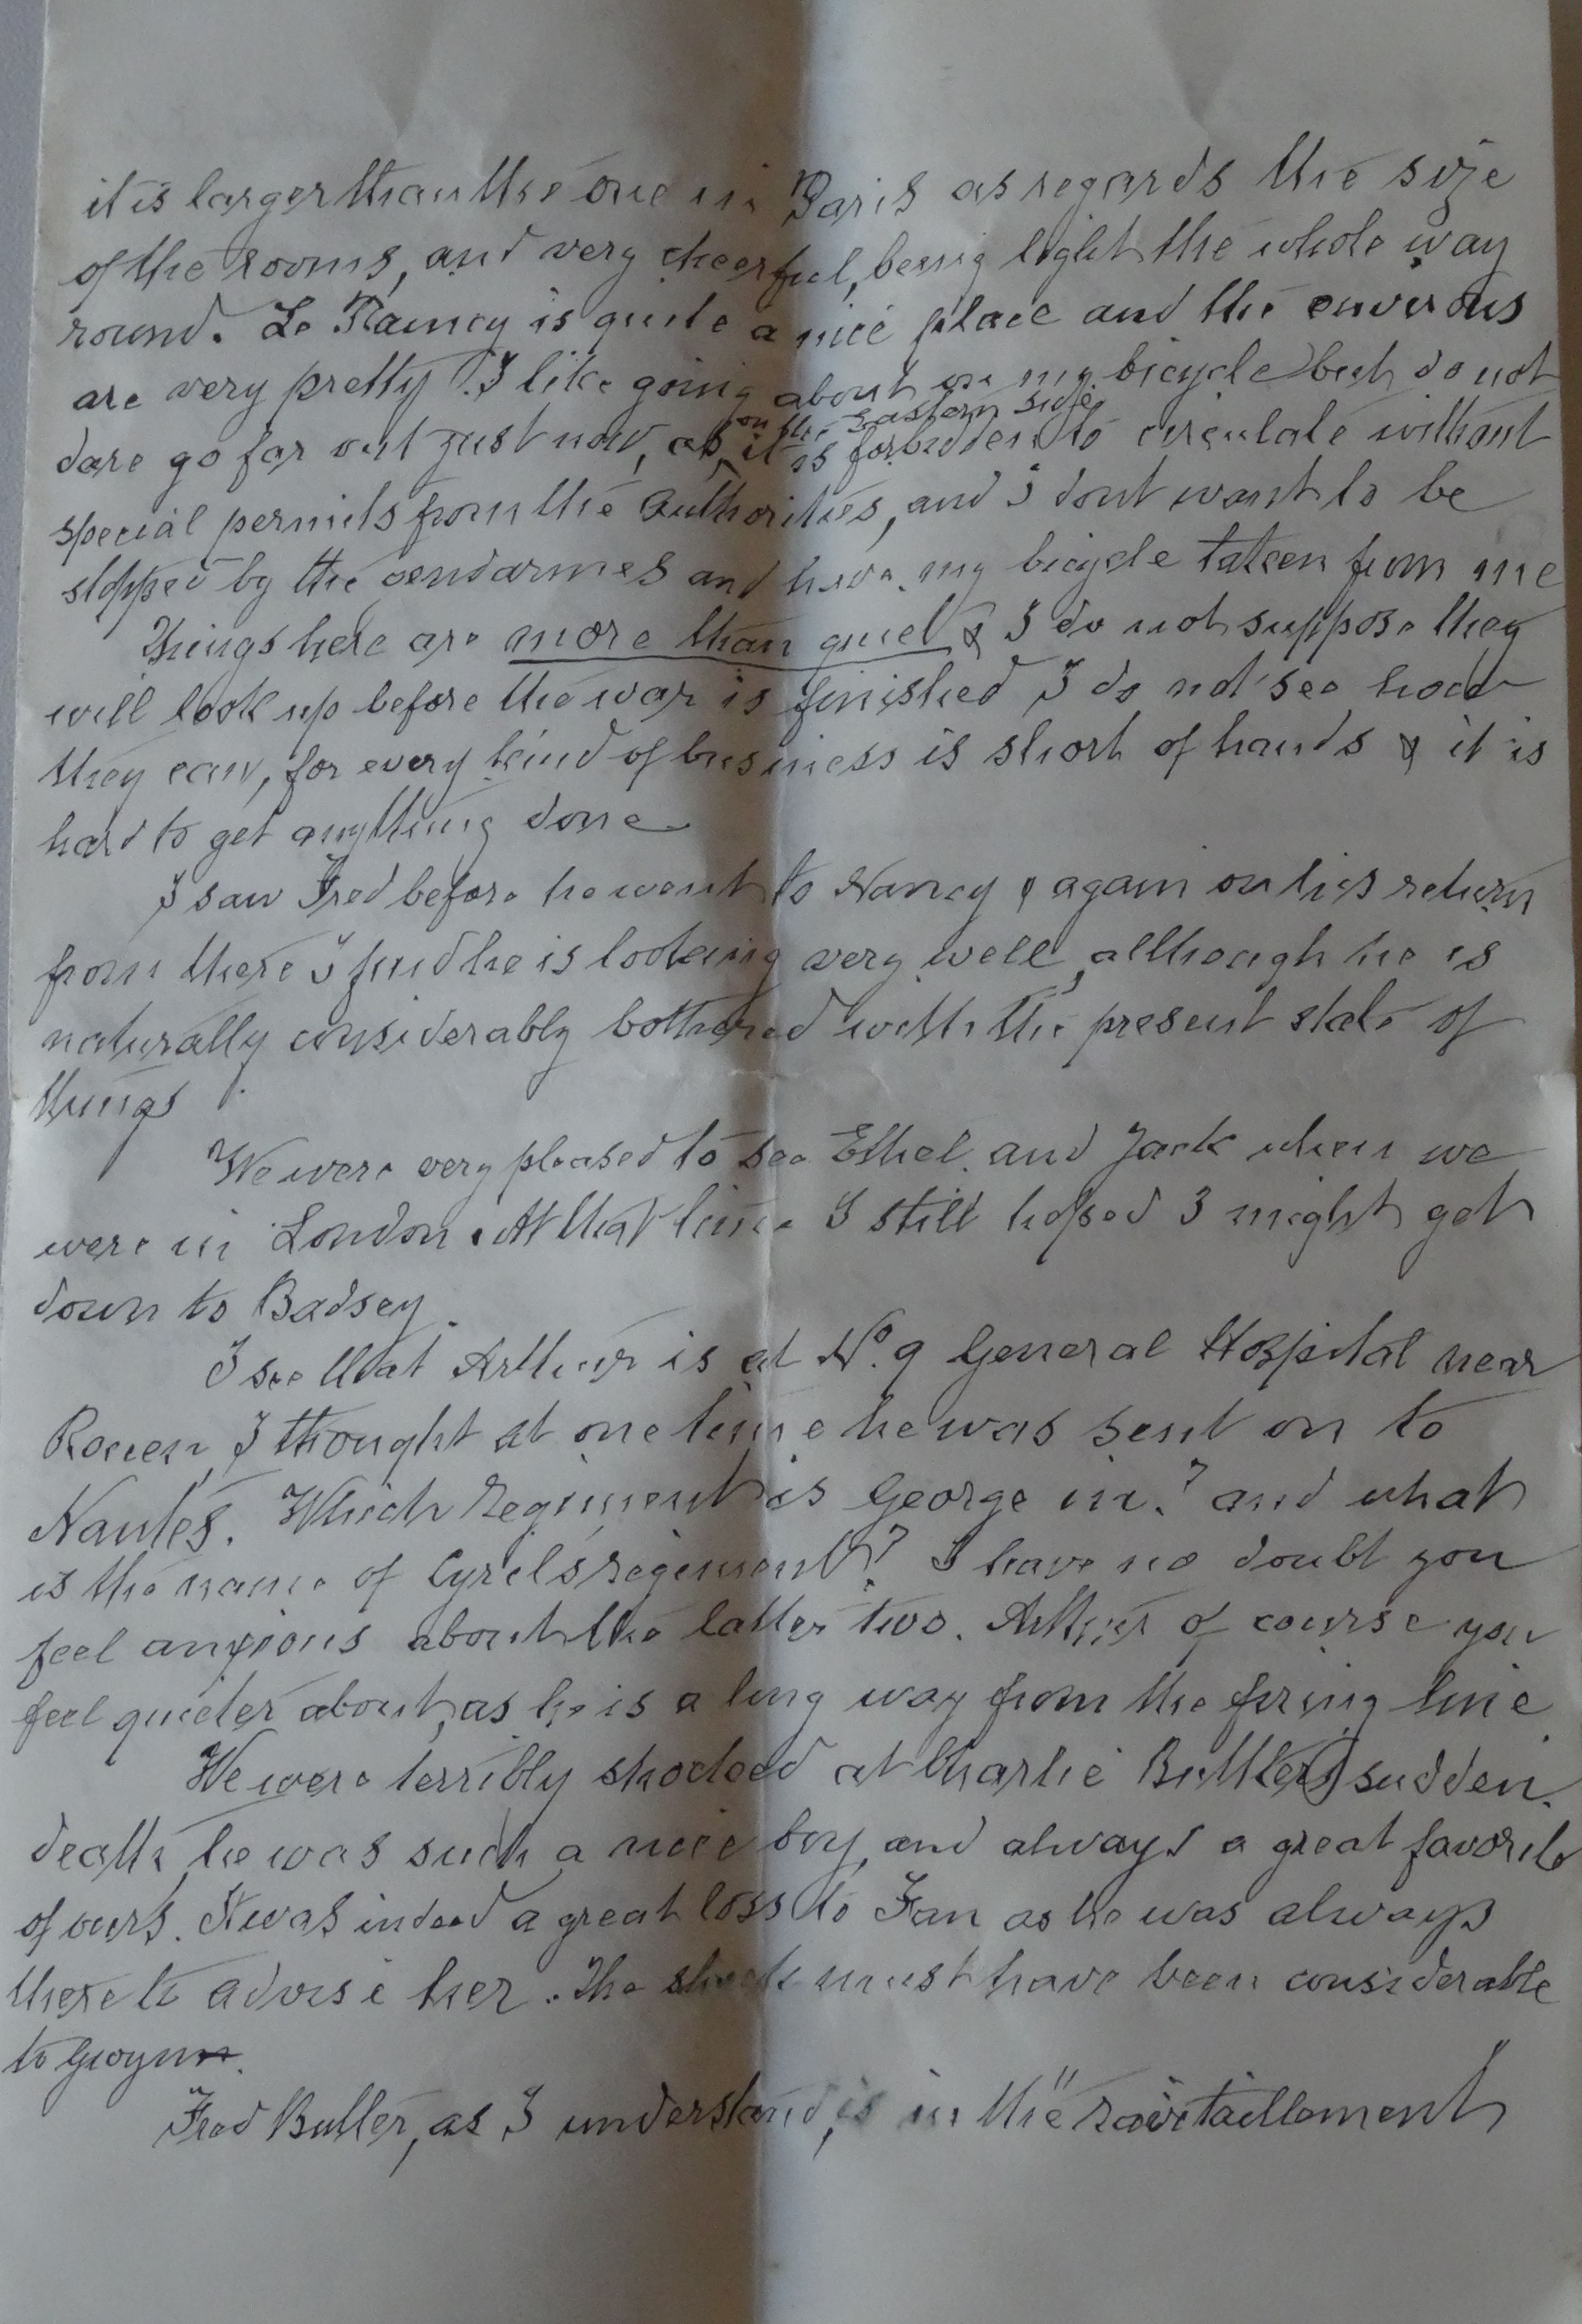 it is larger than the one in Paris as regards the size
of the rooms, and very cheerful, being light the whole way
round. Le Raincy is quite a nice place and the environs
are very pretty. I like going about on my bicycle but do not
on the Eastern side
dare go far out just now, as it is forbidden to circulate without
special permits from the authorities, and I dont want to be
stopped by the gendarmes and have my bicycle taken from me
Things here are more than quiet & I do not suppose they
will look up before the war is finished I do not see how
they can, for every kind of business is short of hands & it is
hard to get anything done
I saw Fred before he went to Nancy & again on his return
from there I find he is looking very well, although he is
naturally considerably bothered with the present state of
things.
We were very pleased to see Ethel and Jack when we
were in London. At that time I still hoped I might get
down to Badsey.
I see that Arthur is at No. 9 General Hospital near
Rouen, I thought at one time he was sent on to
Nantes. Which Regiment is George in? and what
is the name of Cyrils regiment? I have no doubt you
feel anxious about the latter two. Arthur of course you
feel quieter about, as he is a long way from the firing line
We were terribly shocked at Charlie Butlers sudden
death, he was such a nice boy, and always a great favorite
of ours. It was indeed a great loss to Fan as he was always
there to advise her. The shock must have been considerable
to Gwynn.
Fred Butler, as I understand, is in the "ravitaillement"